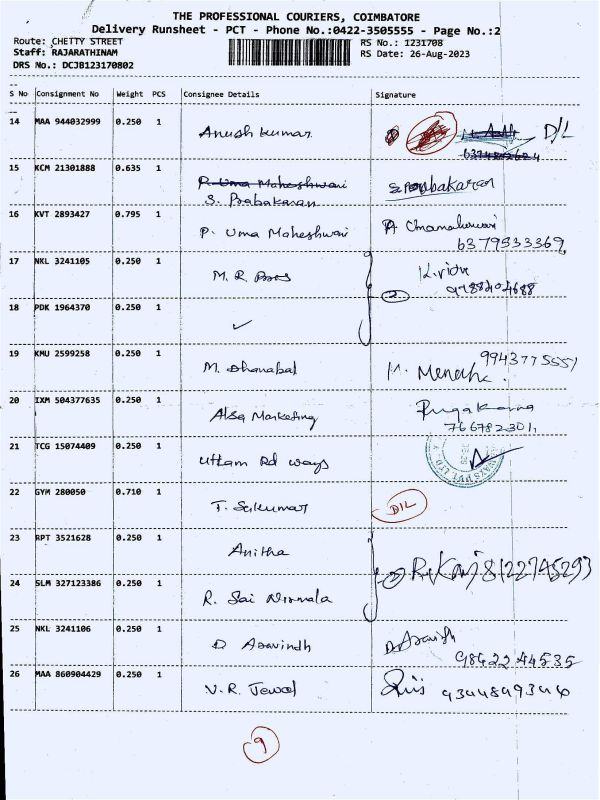 THE PROFESSIONAL COURIERS, COIMBATORE
Delivery Runsheet - PCT - Phone No.:0422-3505555 - Page No.:2
Route: CHETTY STREET RS No.: 1231708
Staff: RAJARATHINAM RS Date: 26-Aug-2023
DRS No.: DCJB123170802
S No Consignment No Weight PCS Consignee Details Signature
14 MAA 944032999 0.250 1 Anush kumar D/L
15 KCM 21301888 0.635 1 P. Uma Maheshwari S. Prabakaran
S. Prabakaran
16 KVT 2893427 0.795 1 P. Uma Maheshwari
6379533369
17 NKL 3241105 0.250 1 M. R.
2
18 PDK 1964370 0.250 1 ✓
19 KMU 2599258 0.250 1 M. Dhanabal
20 IXM 504377635 0.250 1 Alsa Marketing
766782301
21 TCG 15074409 0.250 1 Uttam Rd ways
22 GYM 280050 0.710 1 T. Selkumar D/L
23 RPT 3521628 0.250 1 Anitha
R. Kavi 8122745293
24 SLM 327123386 0.250 1 R. Sai Nirmala
25 NKL 3241106 0.250 1 D Aravindh D. Aravindh
9842244535
26 MAA 860904429 0.250 1 V. R. Jewel
9